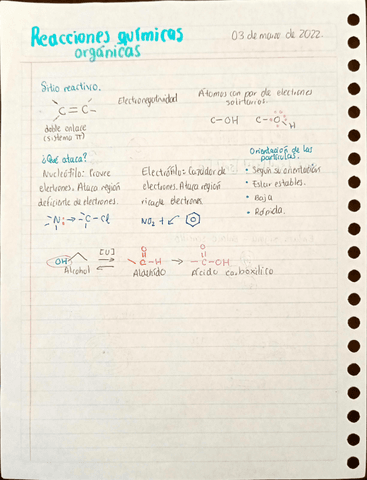 Reacciones químicas
orgánicas
03 de marzo de 2022.
Sitio reactivo.
C=C
doble enlace
(sistema π)
Electronegatividad
Átomos con par de electrones
solitarios.
C-OH
C-O
H
¿Qué ataca?
Nucleófilo: Provee
electrones. Ataca región
deficiente de electrones.
N: → C-Cl
Electrófilo: Cazador de
electrones. Ataca región
rica de electrones
NO₂ +
Orientación de las
partículas.
• Según su orientación
• Estar estables.
• Baja
• Rápida.
OH
Alcohol
[O]
O
C-H
Aldehído
→
O
C-OH
Ácido carboxílico